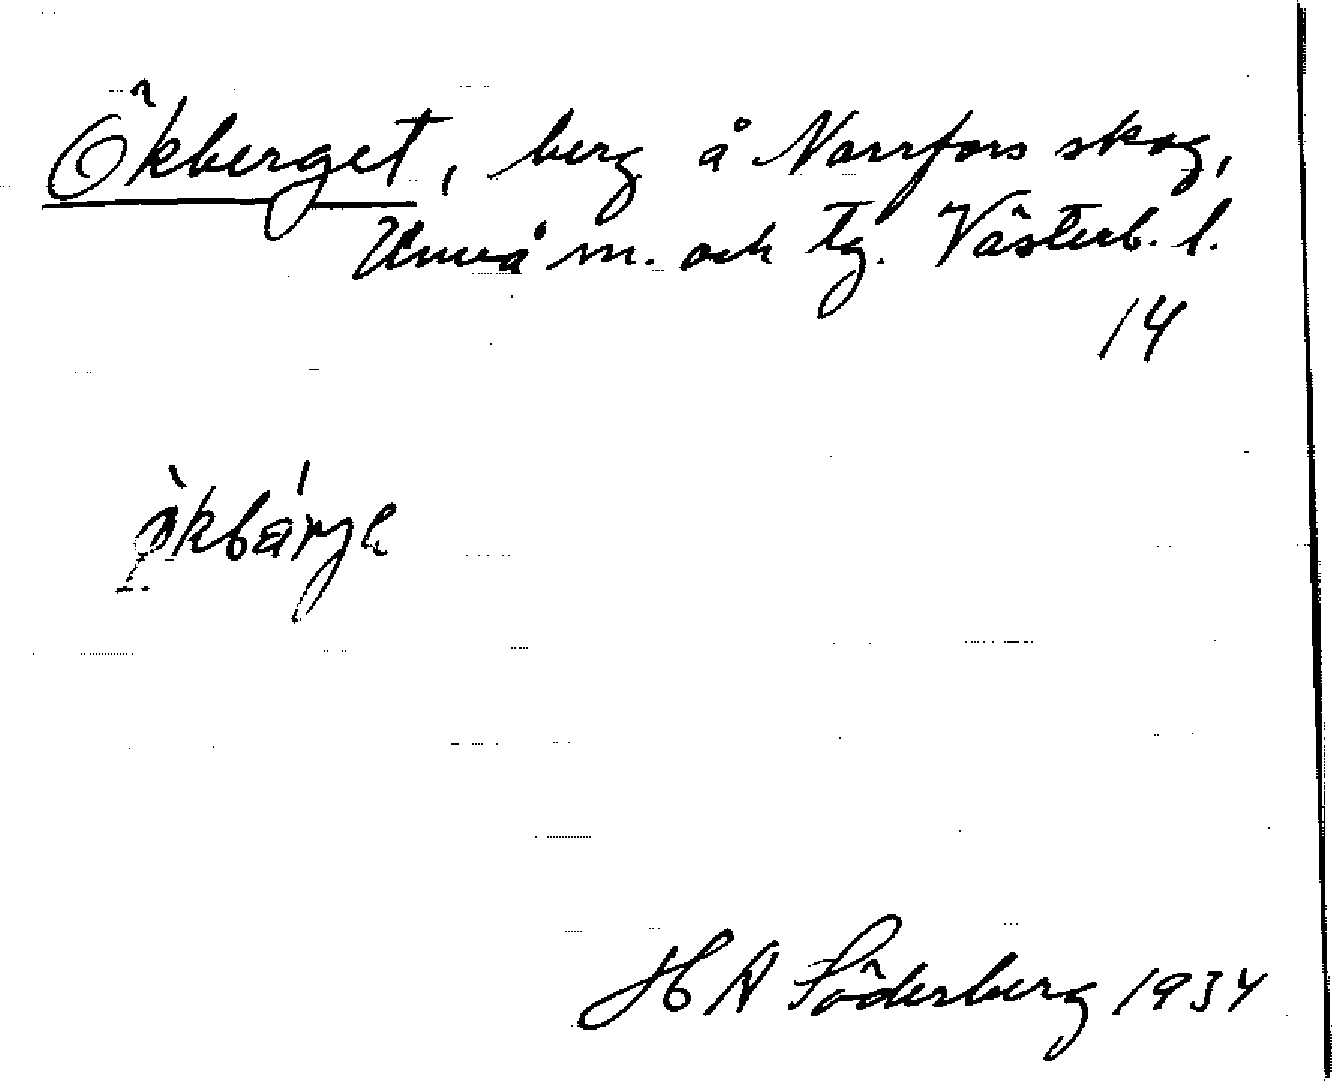 Ökberget, berg å Norrfors skog,
Umeå sn. och tg. Västerb. l.
14
H A Söderberg 1934